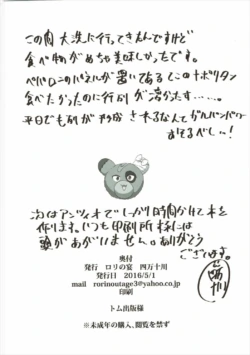 この間大洗に行ってきたんですけど
食べ物がめちゃ美味しかったです。
ペパロニのパネルが置いてあるとこのナポリタン
食べたかったのに行列が凄かたす……。
平日でも列が形成されるなんてガルパンパワー
おそるべし…!
次はアンツィオでしっかり時間かけて本を
作ります。いつも印刷所様には
頭があがりません。ありがとう
ございます。
四万十川
奥付
発行 ロリの宴 四万十川
発行日 2016/5/1
mail rorinoutage3@yahoo.co.jp
印刷
トム出版様
※未成年の購入、閲覧を禁ず